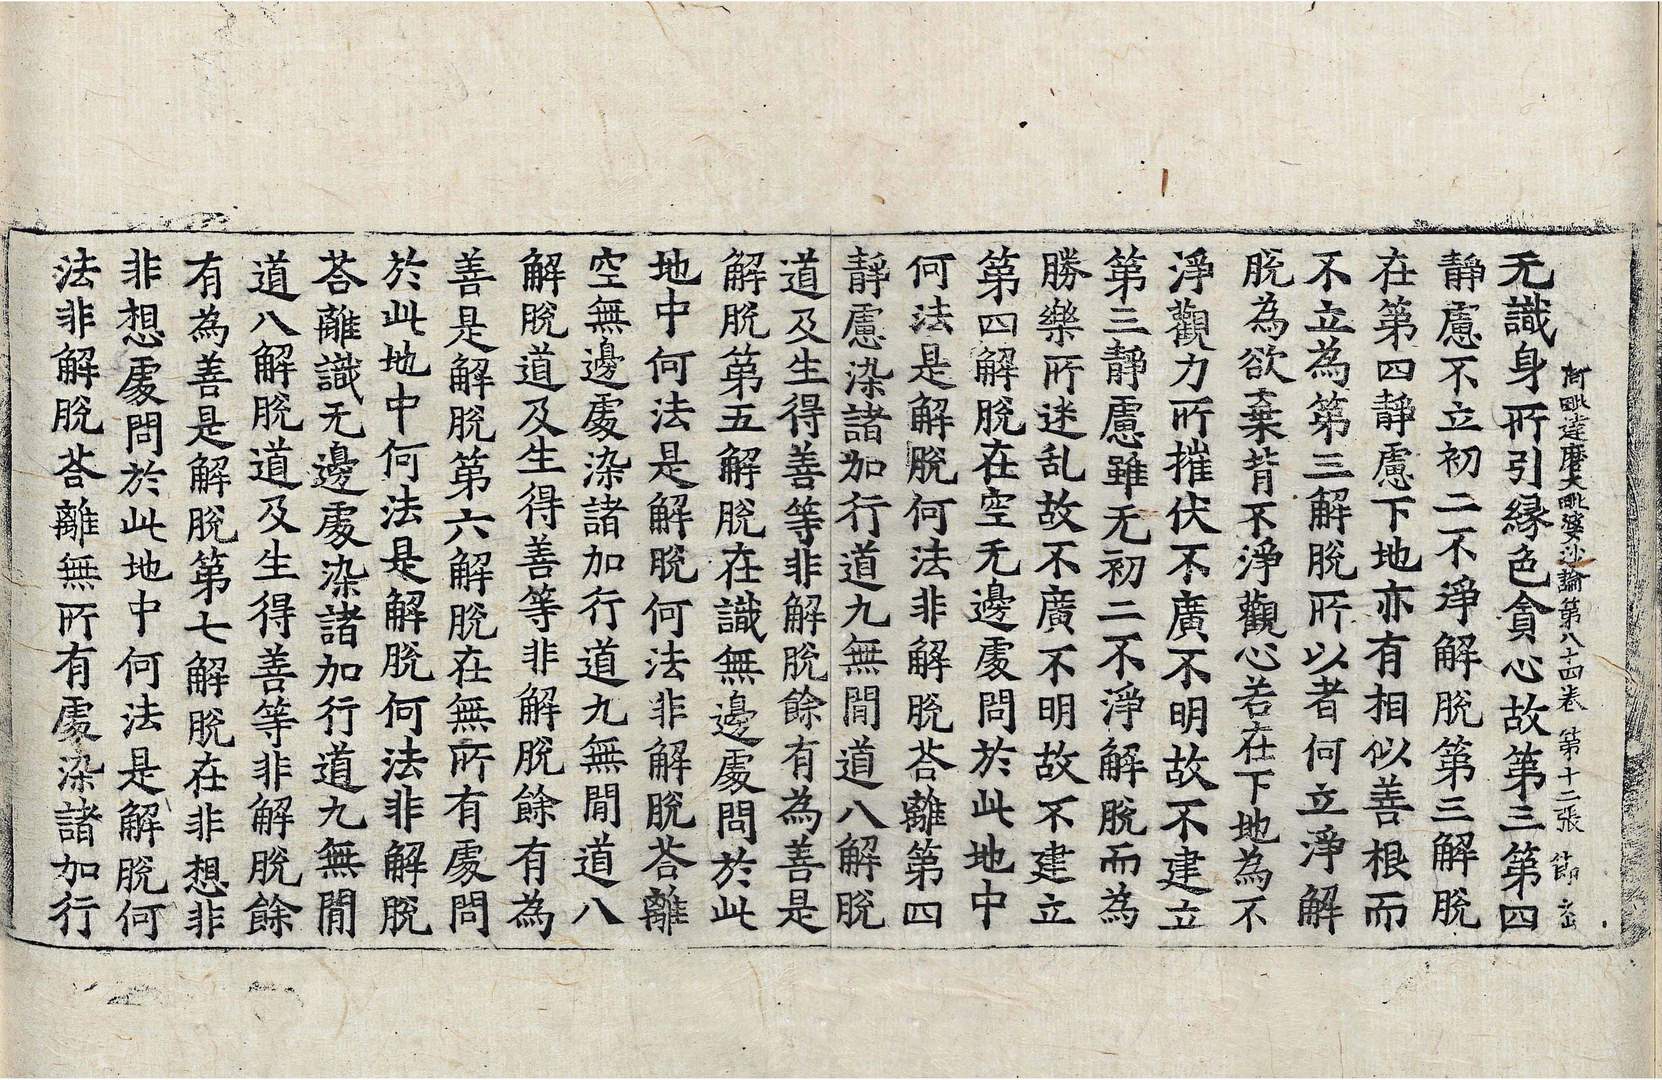 阿毗達磨大毗婆沙論第八十四卷 第十二張 節
无識身所引緣色貪心故第三第四
靜慮不立初二不淨解脫第三解脫
在第四靜慮下地亦有相似善根而
不立為第三解脫所以者何立淨解
脫為欲棄背不淨觀心若在下地為不
淨觀力所摧伏不廣不明故不建立
第三靜慮雖无初二不淨解脫而為
勝樂所迷乱故不廣不明故不建立
第四解脫在空无邊處問於此地中
何法是解脫何法非解脫荅離第四
靜慮染諸加行道九無閒道八解脫
道及生得善等非解脫餘有為善是
解脫第五解脫在識無邊處問於此
地中何法是解脫何法非解脫荅離
空無邊處染諸加行道九無閒道八
解脫道及生得善等非解脫餘有為
善是解脫第六解脫在無所有處問
於此地中何法是解脫何法非解脫
荅離識无邊處染諸加行道九無閒
道八解脫道及生得善等非解脫餘
有為善是解脫第七解脫在非想非
非想處問於此地中何法是解脫何
法非解脫荅離無所有處染諸加行